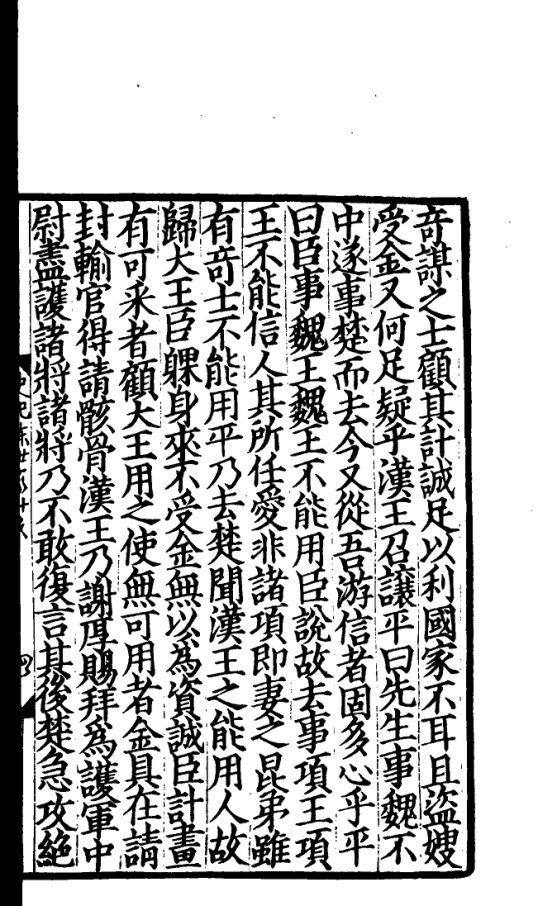 奇謀之士顧其計誠足以利國家不耳且盜嫂
受金又何足疑乎漢王召讓平曰先生事魏不
中遂事楚而去今又從吾游信者固多心乎平
曰臣事魏王魏王不能用臣說故去事項王項
王不能信人其所任愛非諸項即妻之昆弟雖
有奇士不能用平乃去楚聞漢王之能用人故
歸大王臣躶身來不受金無以為資誠臣計畫
有可采者顧大王用之使無可用者金具在請
封輸官得請骸骨漢王乃謝厚賜拜爲護軍中
尉盡護諸將諸將乃不敢復言其後楚急攻絕